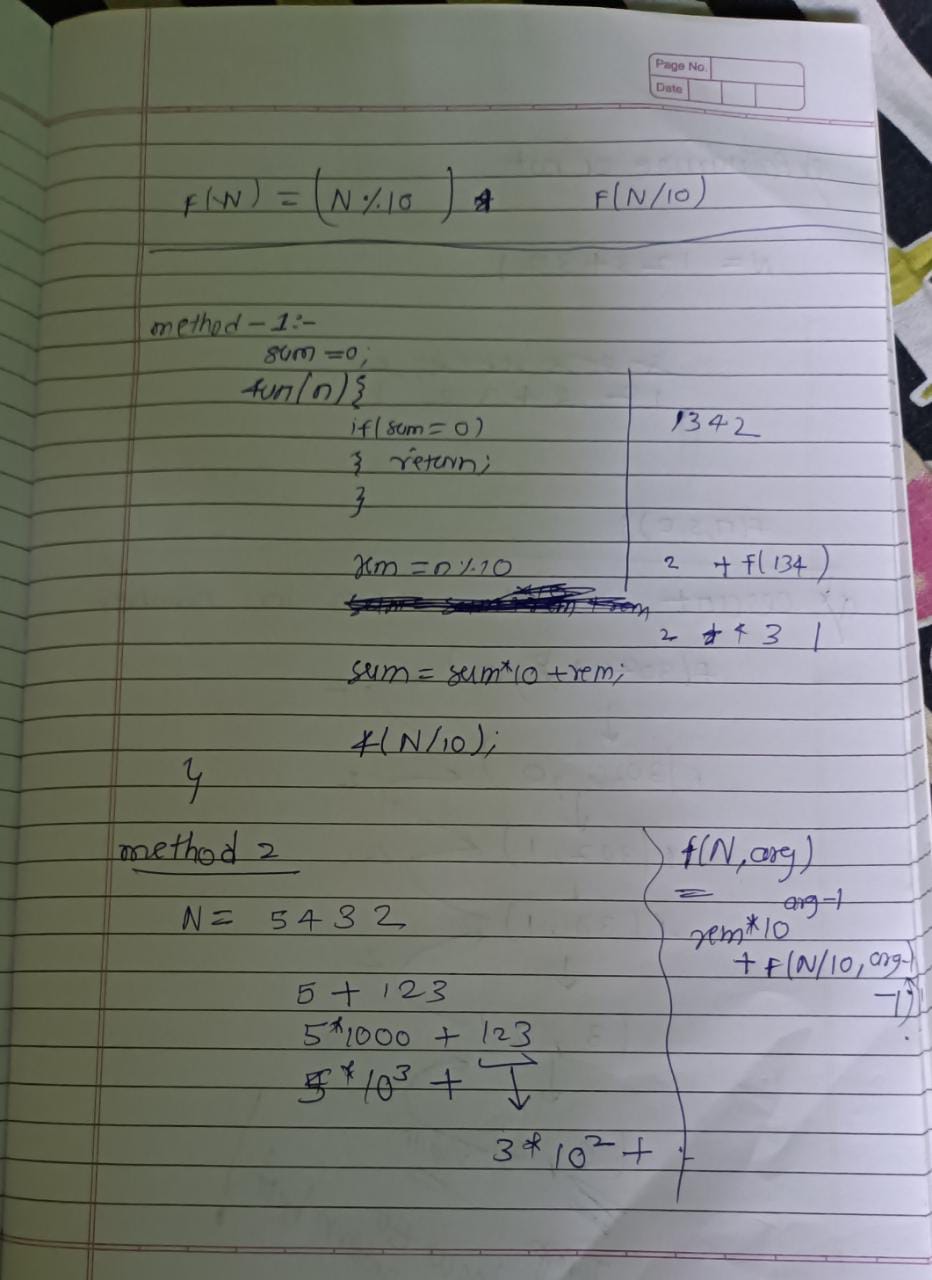 Page No.
Date
F(N) = (N%10) * F(N/10)
method - 1:-
sum = 0;
fun(n){
if(sum = 0)
} return;
}
1342
rem = n%10
2 + f(134)
sum = sum*10 + rem;
f(N/10);
}
method 2
N = 5432
5 + 123
5*1000 + 123
5*10³ +
3*10² +
f(N, arg)
=
rem*10^arg-1
+ F(N/10, arg-1)